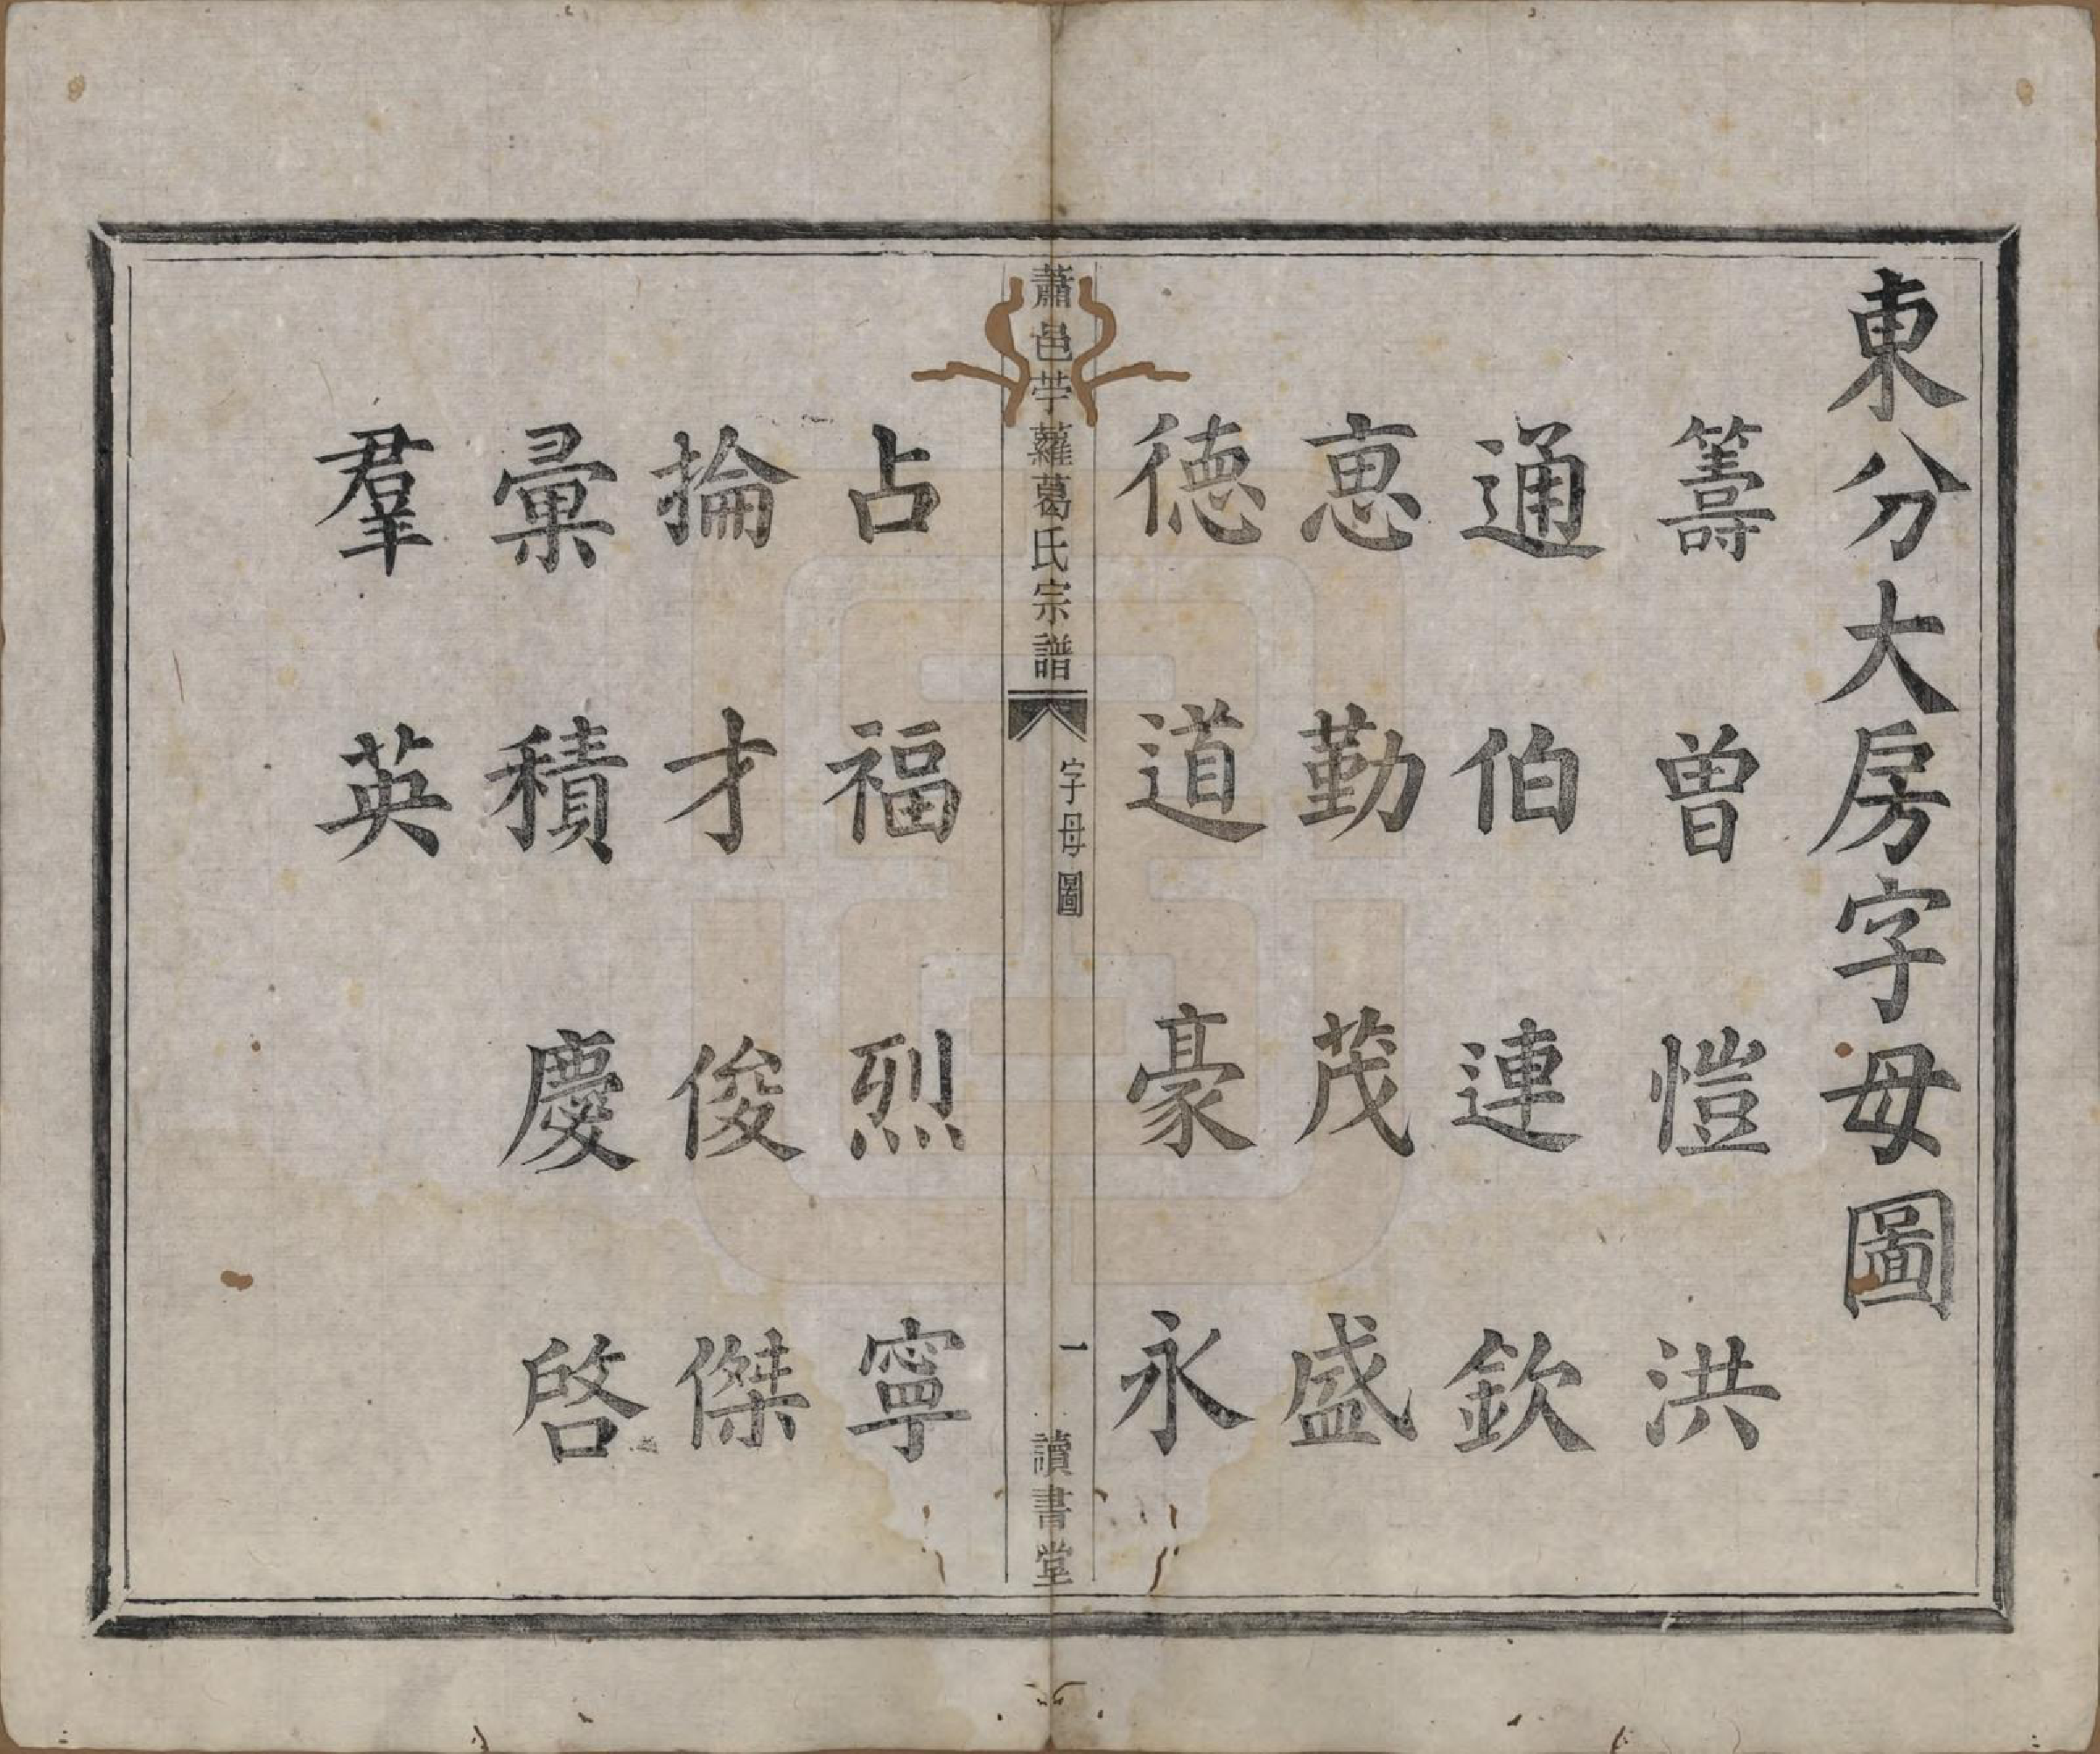 東分大房字母圖
籌曾愷洪
通伯連欽
惠勤茂盛
德道豪永
蕭邑苧蘿葛氏宗譜
字母圖
一
讀書堂
占福烈寧
掄才俊傑
彙積慶啓
羣英